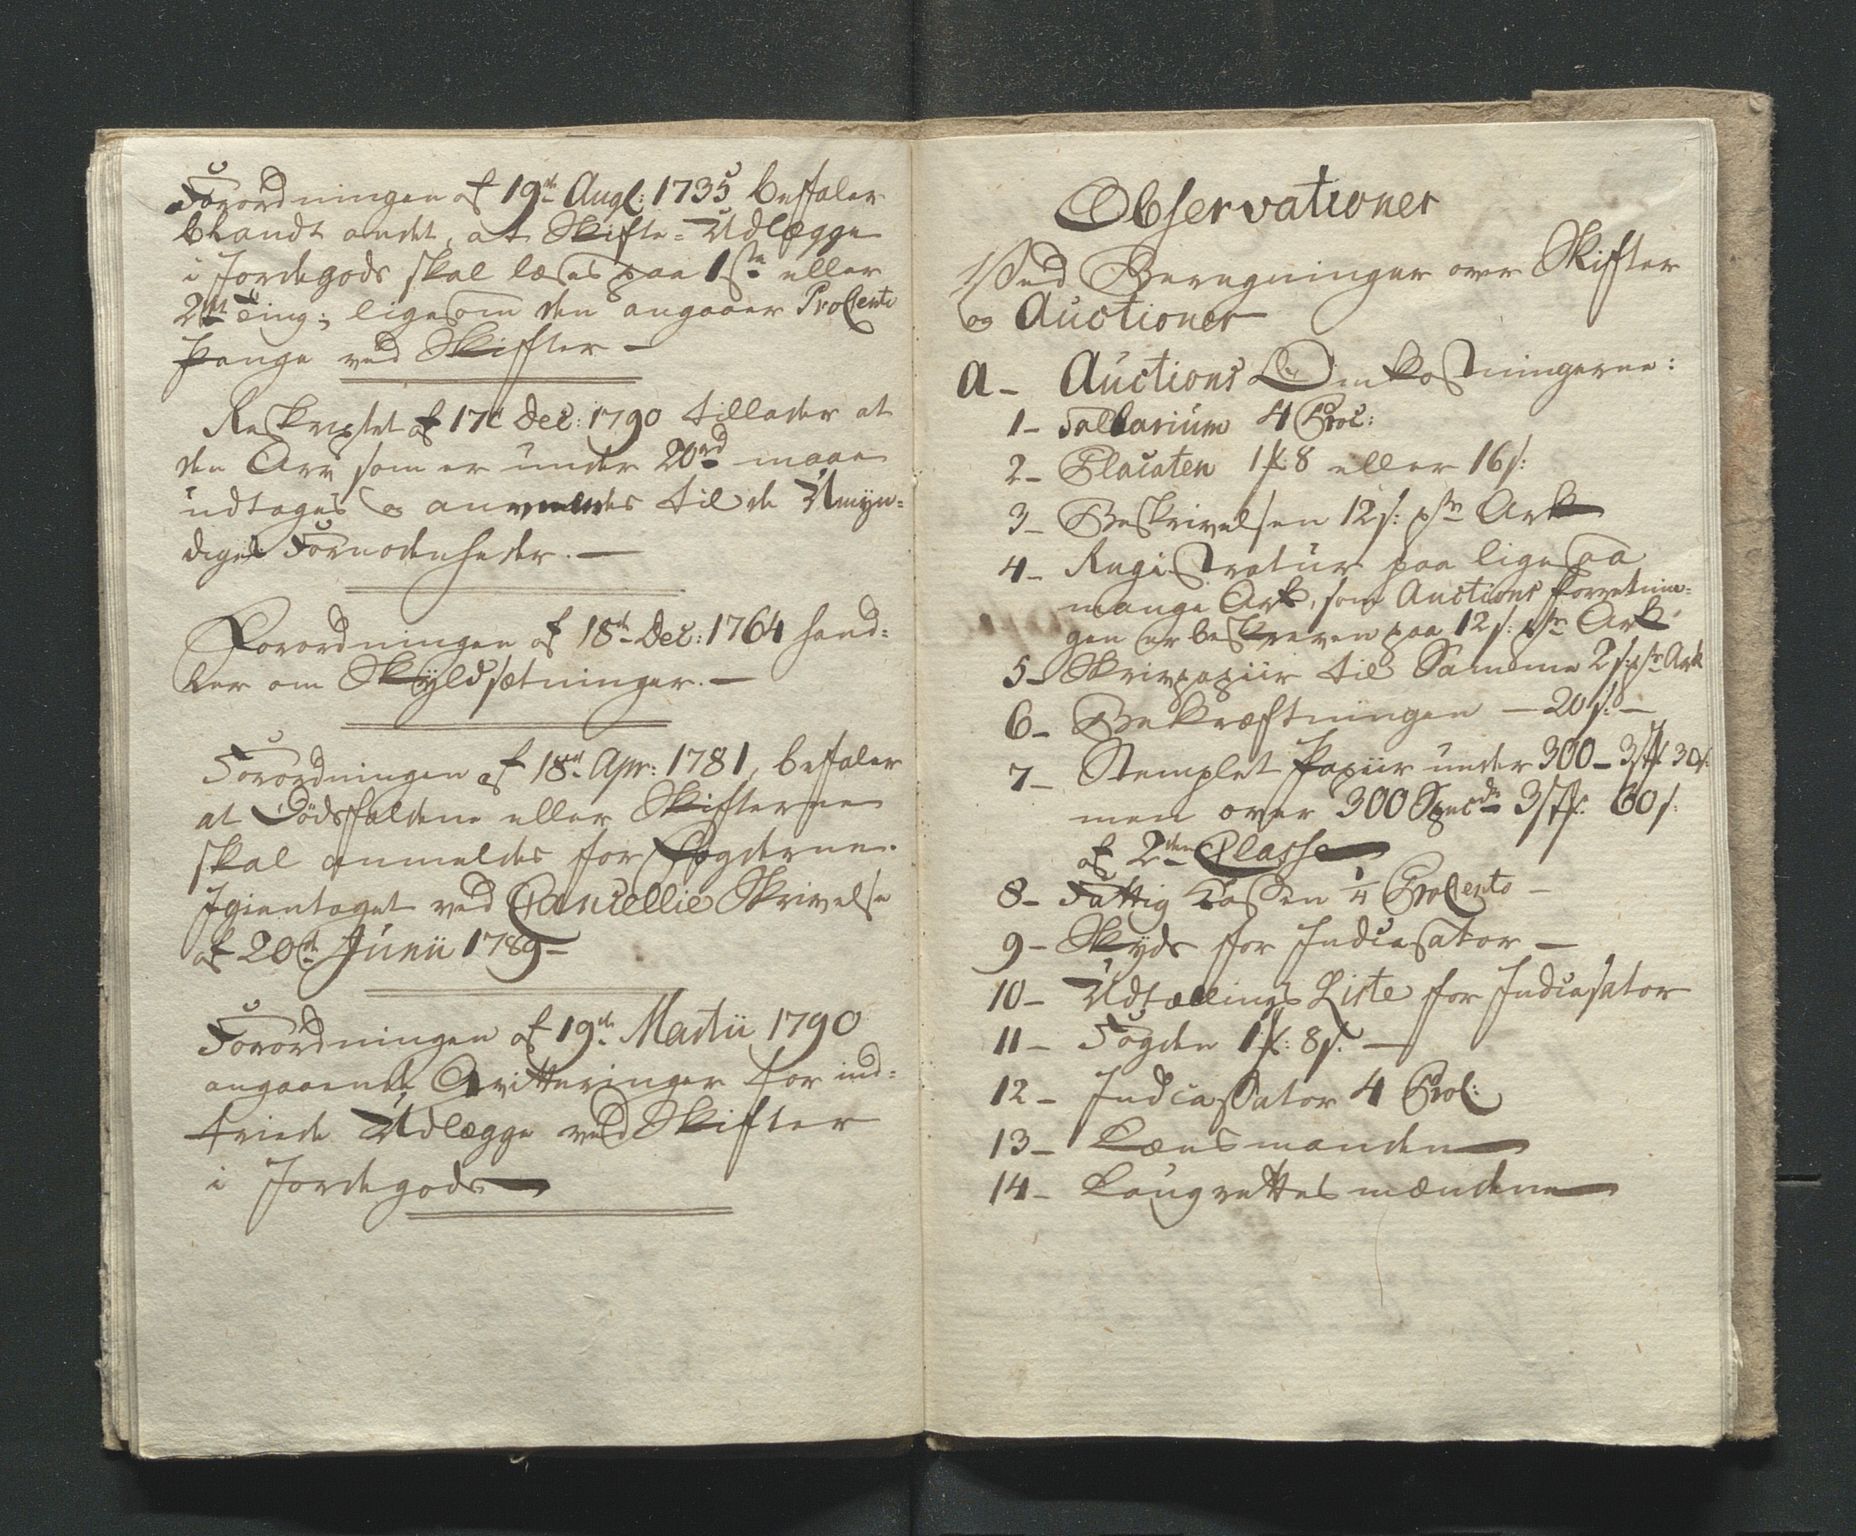 Forordningen af 19de Augl: 1735 befaler
blandt andet, at Skifte-Udlægge
i Jordegods skal læses paa 1ste eller
2det Ting; ligesom den angaaer ProCento
Penge ved Skifter —
Reskriptet af 17de Dec: 1790 tillader at
den Arv som er under 20rd maae
udtages og anvendes til de Umyn-
diges Fornødenheder. —
Forordningen af 18de Dec: 1764 hand-
ler om Skyldsætninger. —
Forordningen af 18de Apr: 1781, befaler
at Dödsfaldene eller Skifterne
skal anmeldes for Fogderne.
Igientaget ved Cancellie Skrivelse
af 20de Junii 1789 —
Forordningen af 19de Martii 1790
angaaende Qvitteringer for ind-
friede Udlægge ved Skifter
i Jordegods —
Observationer
Ved Beregninger over Skifter
og Auctioner
a — Auctions Omkostningerne:
1 — Sallarium 4 ProC:
2 — Placaten 1 8 eller 16 s:
3 — Beskrivelsen 12 s: pr Ark
4 — Regi Stratur paa ligesaa
mange Ark, som Auctions Forretnin-
gen er beskreven paa 12 s: pr Ark
5 — Skrivpapiir til Samme 2 s: pr Ark
6 — Bekræftningen — 20 s: —
7 — Stemplet Papiir under 300 — 3 30 s:
men over 300 Specd 3 60 s:
af 2den Classe
8 — Fattig Cassen 1/4 ProCento —
9 — Skyds for Indcasator —
10 — Udtællings Liste for Indcasator
11 — Fogden 1 : 8 s. —
12 — Indcassator 4 ProC:
13 — Lænsmanden
14 — Laugrettesmændene